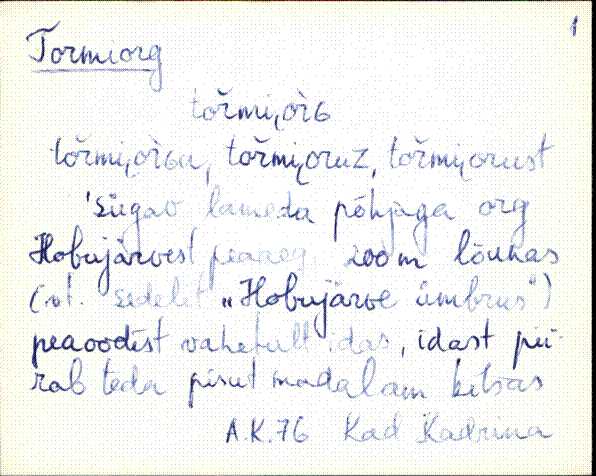 1
Tormiorg
tořmi,oř̀G
tořmi,oř̀Gu, tořmi,oruz, tořmi,orust
'Sügav lameda põhjaga org
Hobujärvest peaaeg. 200 m lõunas
(vt. sedelit „Hobujärve ümbrus")
peaoodist vahetult idas, idast pii-
rab teda pisut madalam kitsas
A.K. 76 Kad Kadrina